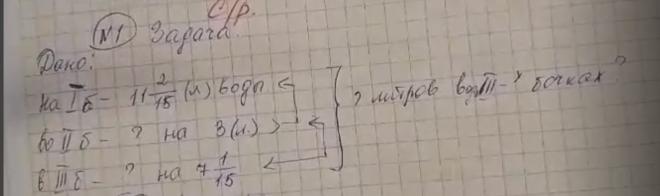 С/р.
№1 Задача.
Дано:
на I б - 11 2/15 (л) воды
во II б - ? на 3 (л.) >
в III б - ? на 7 1/15 <
? литров во III-х бочках?